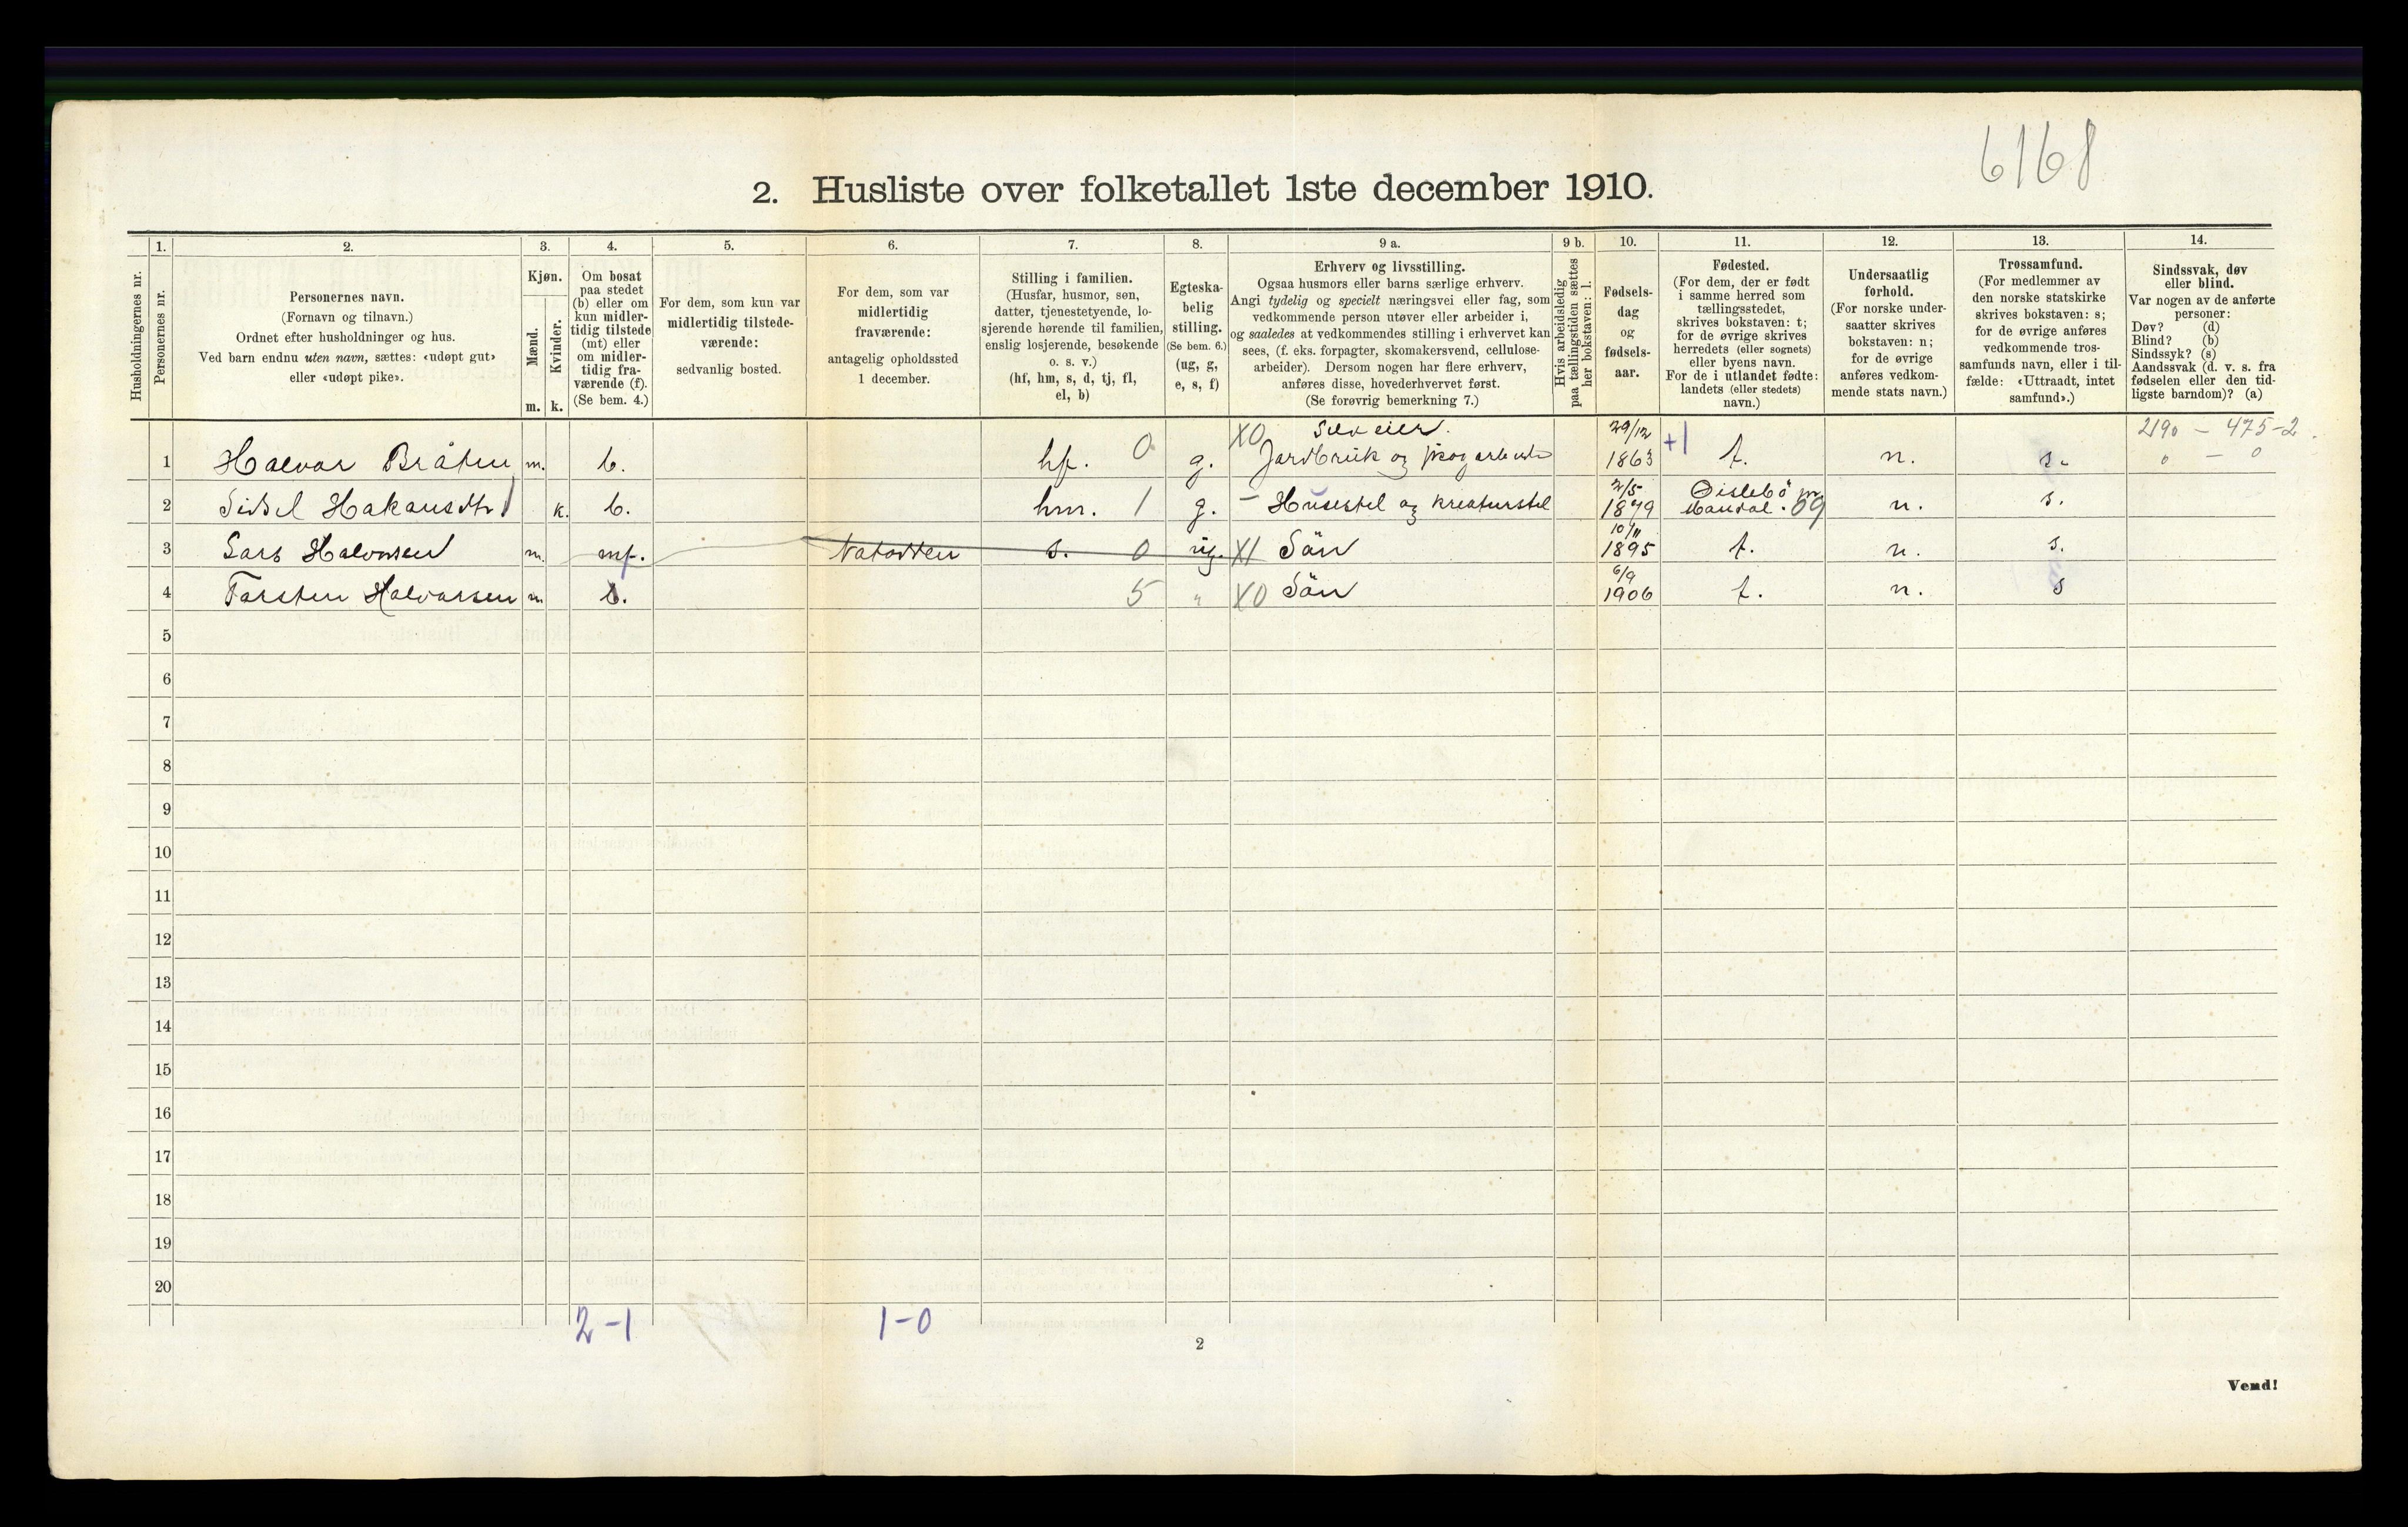 6168
2. Husliste over folketallet 1ste december 1910.
Husholdningernes nr.
1.
Personernes nr.
2.
Personernes navn.
(Fornavn og tilnavn.)
Ordnet efter husholdninger og hus.
Ved barn endnu uten navn, sættes: «udøpt gut»
eller «udøpt pike».
3.
Kjøn.
Mænd.
Kvinder.
m. k.
4.
Om bosat
paa stedet
(b) eller om
kun midler-
tidig tilstede
(mt) eller
om midler-
tidig fra-
værende (f).
(Se bem. 4.)
5.
For dem, som kun var
midlertidig tilstede-
værende:
sedvanlig bosted.
6.
For dem, som var
midlertidig
fraværende:
antagelig opholdssted
1 december.
7.
Stilling i familien.
(Husfar, husmor, søn,
datter, tjenestetyende, lo-
sjerende hørende til familien,
enslig losjerende, besøkende
o. s. v.)
(hf, hm, s, d, tj, fl,
el, b)
8.
Egteska-
belig
stilling.
(Se bem. 6.)
(ug, g,
e, s, f)
9 a.
Erhverv og livsstilling.
Ogsaa husmors eller barns særlige erhverv.
Angi tydelig og specielt næringsvei eller fag, som
vedkommende person utøver eller arbeider i,
og saaledes at vedkommendes stilling i erhvervet kan
sees, (f. eks. forpagter, skomakersvend, cellulose-
arbeider). Dersom nogen har flere erhverv,
anføres disse, hovederhvervet først.
(Se forøvrig bemerkning 7.)
9 b.
Hvis arbeidsledig
paa tællingstiden sættes
her bokstaven: l.
10.
Fødsels-
dag
og
fødsels-
aar.
11.
Fødested.
(For dem, der er født
i samme herred som
tællingsstedet,
skrives bokstaven: t;
for de øvrige skrives
herredets (eller sognets)
eller byens navn.
For de i utlandet fødte:
landets (eller stedets)
navn.)
12.
Undersaatlig
forhold.
(For norske under-
saatter skrives
bokstaven: n;
for de øvrige
anføres vedkom-
mende stats navn.)
13.
Trossamfund.
(For medlemmer av
den norske statskirke
skrives bokstaven: s;
for de øvrige anføres
vedkommende tros-
samfunds navn, eller i til-
fælde: «Uttraadt, intet
samfund».)
14.
Sindssvak, døv
eller blind.
Var nogen av de anførte
personer:
Døv? (d)
Blind? (b)
Sindssyk? (s)
Aandssvak (d. v. s. fra
fødselen eller den tid-
ligste barndom)? (a)
X0 Selveier. 29/12 +1 2190 - 475-2
1 Halvar Bråten m. b. hf. 0 g. Jardbruk og skogarbeide 1863 t. n. s. 0 - 0
2/5 Øislebö
2 Sidsel Hakansdtr k. b. hm. 1 g. - Husestel og kreaturstel 1879 Mandal. 09 n. s.
10/11
3 Lars Halvorsen m. mf. Notodden s. 0 ug. X1 Sön 1895 t. n. s.
6/9
4 Tarsten Halvarsen m b. 5 " X0 Sön 1906 t. n. s
5
6
7
8
9
10
11
12
13
14
15
16
17
18
19
20
2-1 1-0
2
Vend!